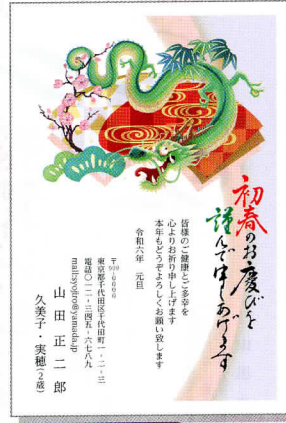 初春のお慶びを
謹んで申しあげます
皆様のご健康とご多幸を
心よりお祈り申し上げます
本年もどうぞよろしくお願い致します
令和六年 元旦
〒000-0000
東京都千代田区千代田町一-二-三
電話〇一二-三四五-六七八九
山田正二郎
久美子・実穂(2歳)